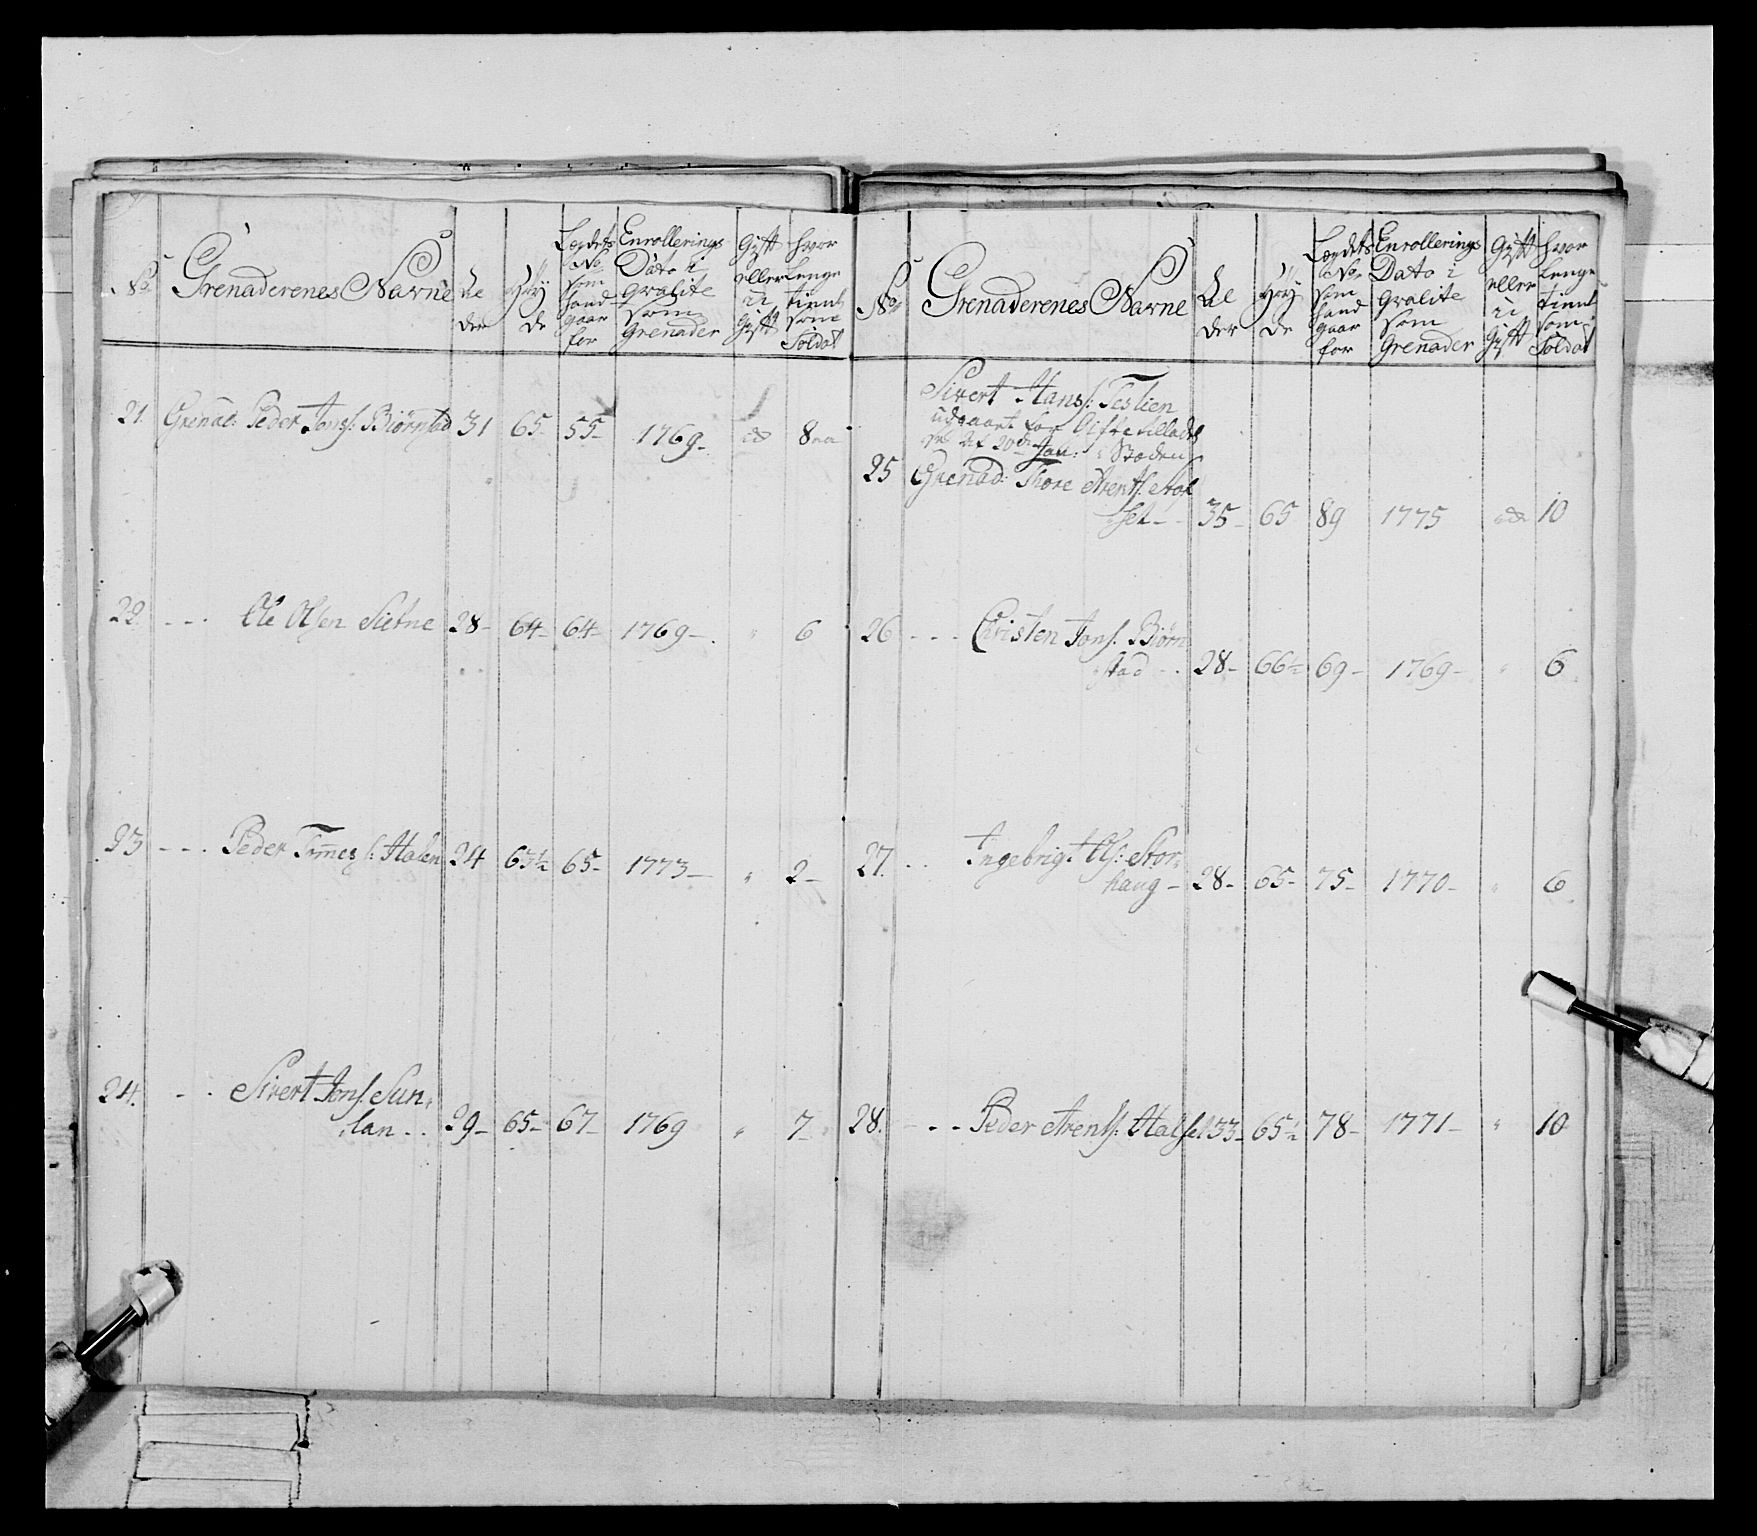 No Grenaderenes Navne Al der Høy de Lægdets No som hand gaar for Enrollerings Dato i Qvalite som Grenader Gift eller u Gift hvor Lenge tient som Soldat
21. Grenad: Peder Jons: Biørnstad 31 65 55 1769 8
22. Ole Olsen Sletne 28 64 64 1769 " 6
23 Peder Tommes: Halen 24 65½ 65 1773 " 2
24. Sivert Jons. Sun-
lan 29 65 67 1769 " 7
No Grenaderenes Navne Al der Høy de Lægdets No som hand gaar for Enrollerings Dato i Qvalite som Grenader Gift eller u Gift hvor Lenge tient som Soldat
Sivert Hans: Teslien
udgaaet for
20de Jan:
25 Grenad: Thore Arents: Aol
set 35 65 89 1775 10
26 Christen Jons. Biørn
stad 28 66½ 69 1769 " 6
27. Ingebrigt Ols: Stor-
haug 28 65 75 1770 " 6
28. Peder Arents: Halset 33 65½ 78 1771 " 10